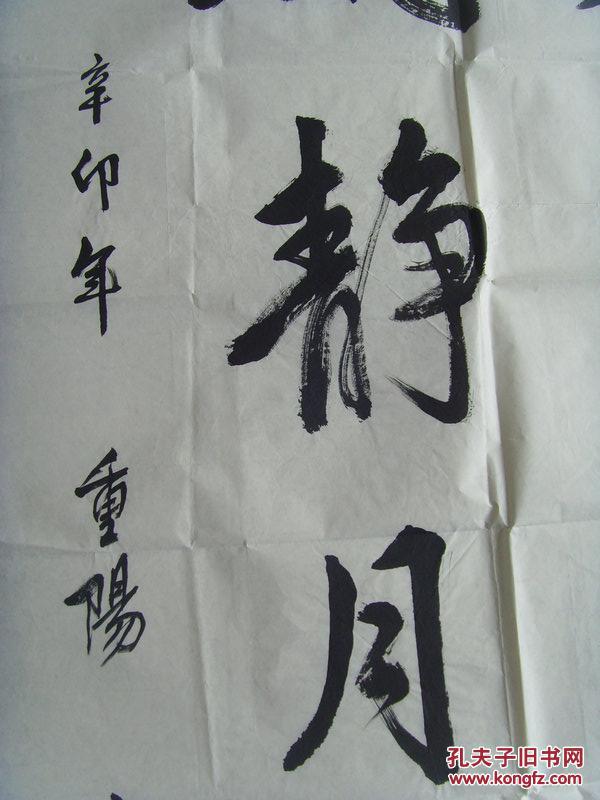 静月
辛卯年 重陽
孔夫子旧书网
www.kongfz.com